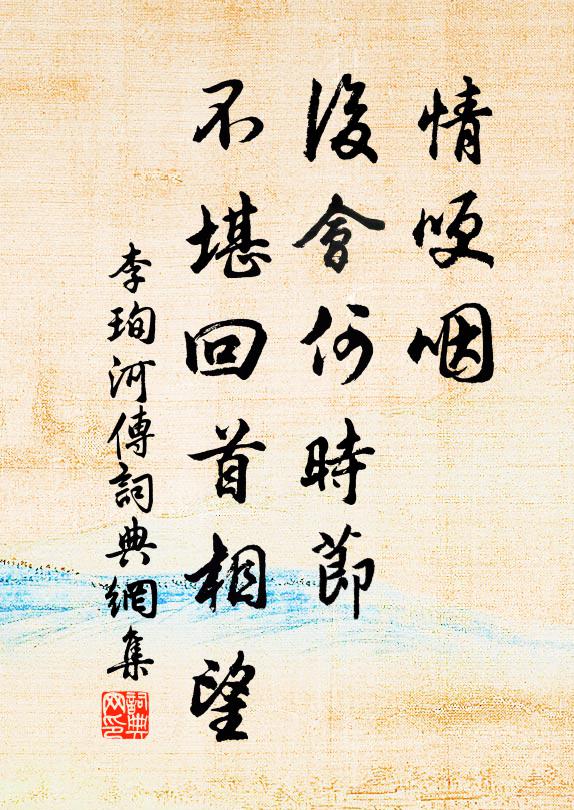 情哽咽
後會何時節
不堪回首相望
李珣河傳詞典網集
詞典網印